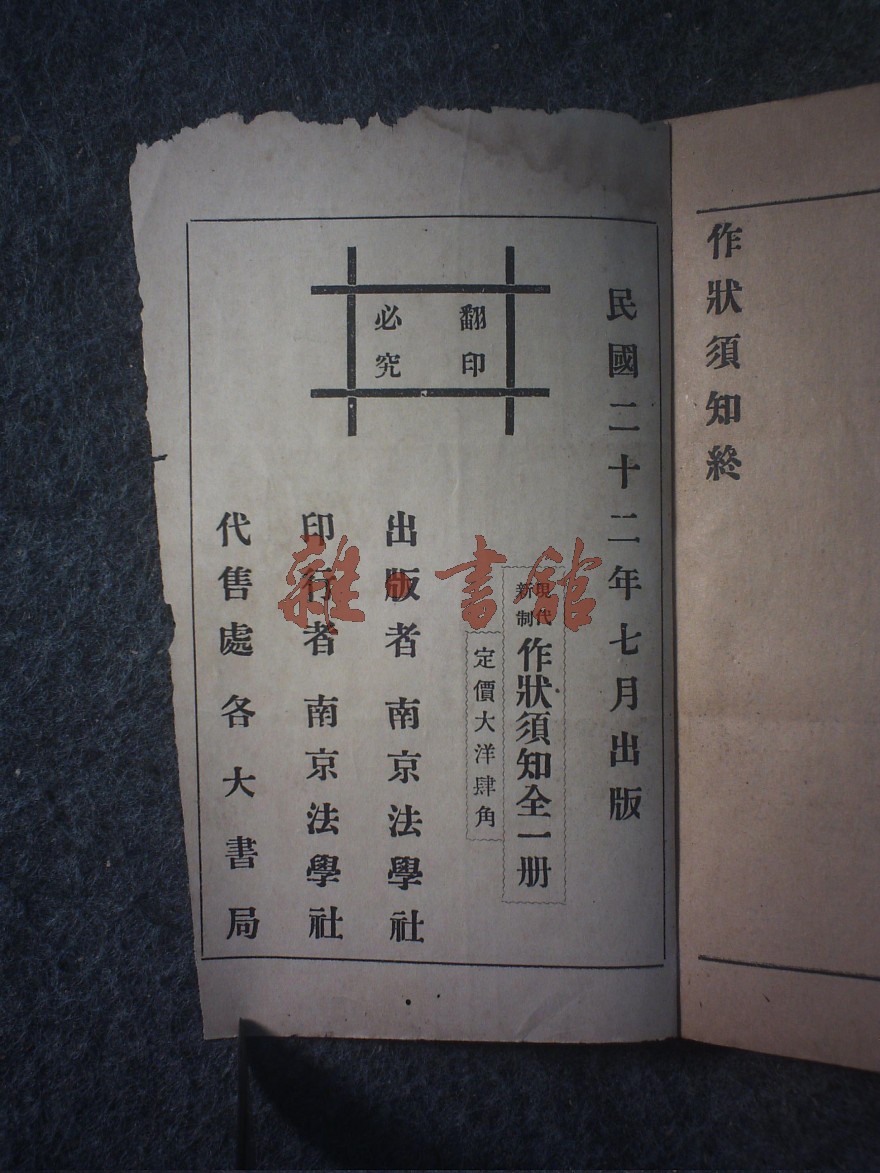 作狀須知終
民國二十二年七月出版
現代
新制
作狀須知全一册
定價大洋肆角
翻印
必究
出版者 南京法學社
印行者 南京法學社
代售處 各大書局
雜書館